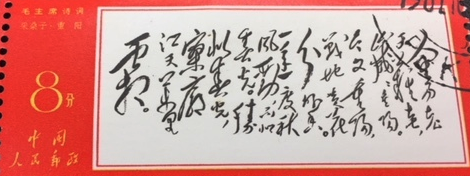 毛主席诗词
采桑子·重阳
8分
中国
人民邮政
人生易老
天难老
岁岁重阳。
今又重阳,
战地黄花
分外香。
一年一度秋
风劲不似
春光胜
似春光,
寥廓
江天万里
霜。